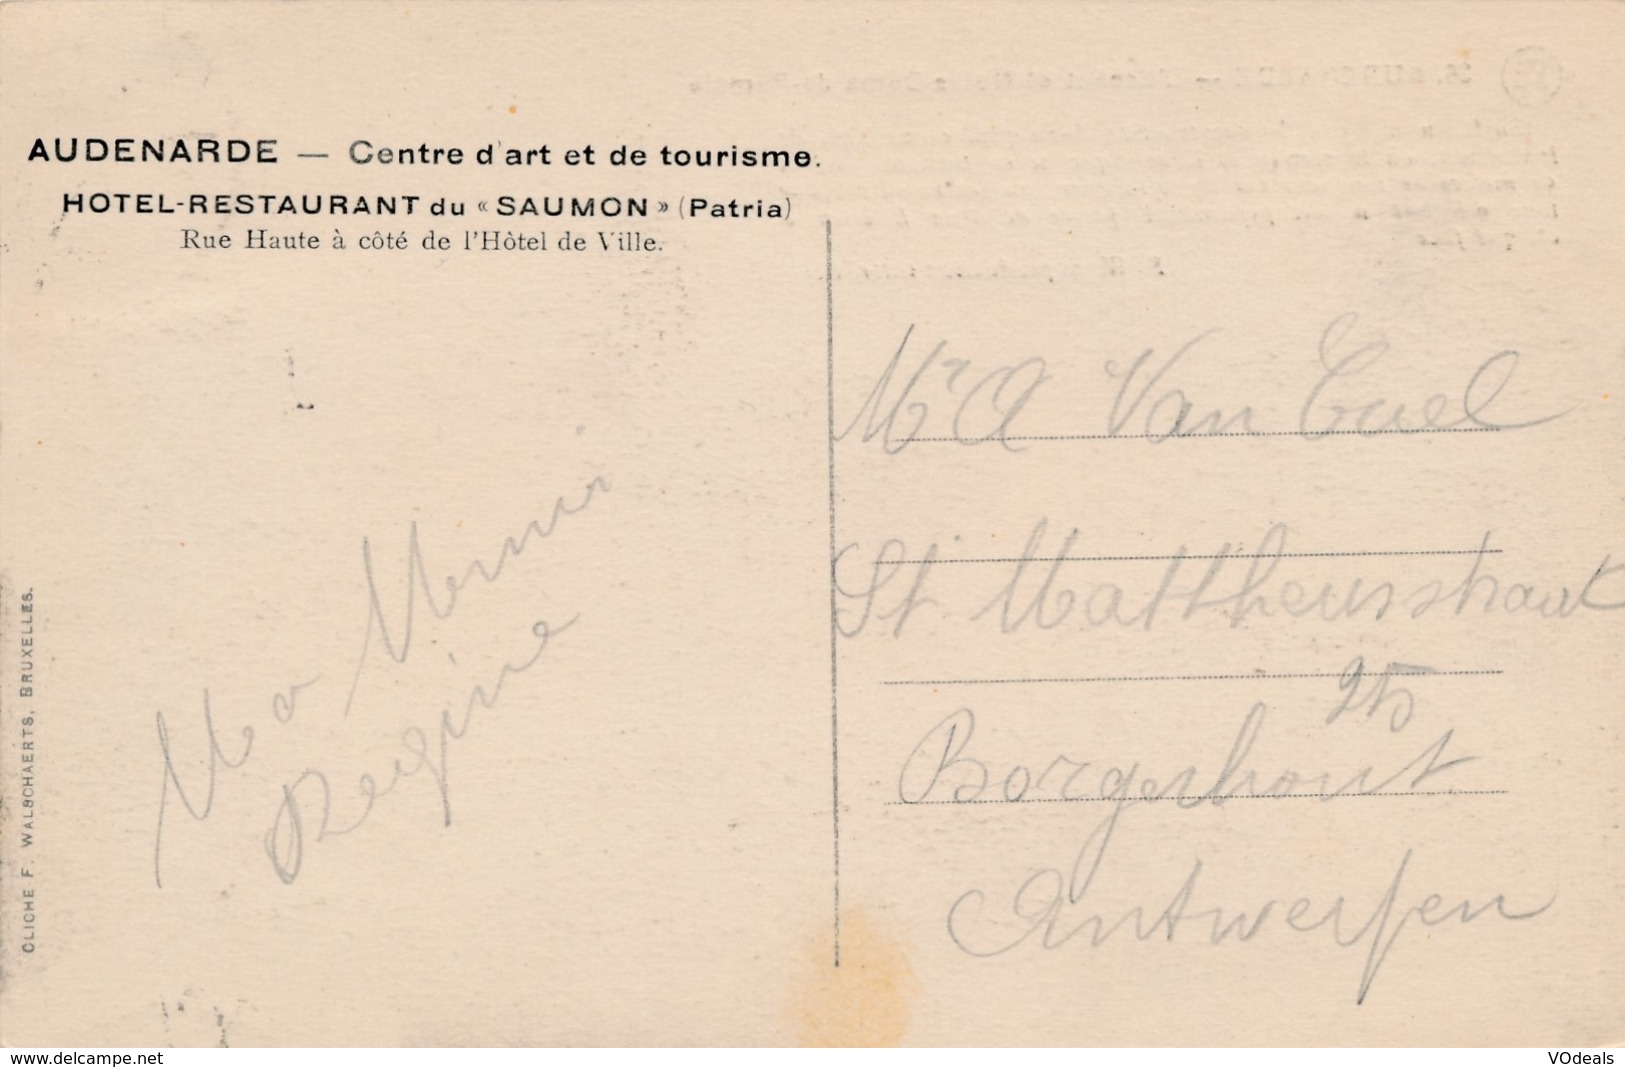 AUDENARDE — Centre d'art et de tourisme.
HOTEL-RESTAURANT du « SAUMON » (Patria)
Rue Haute à côté de l'Hôtel de Ville.
CLICHE F. WALSCHAERTS, BRUXELLES.
Regine
Mr A Van
St Mattheusstraat
25
Borgerhout
Antwerpen
www.delcampe.net
VOdeals